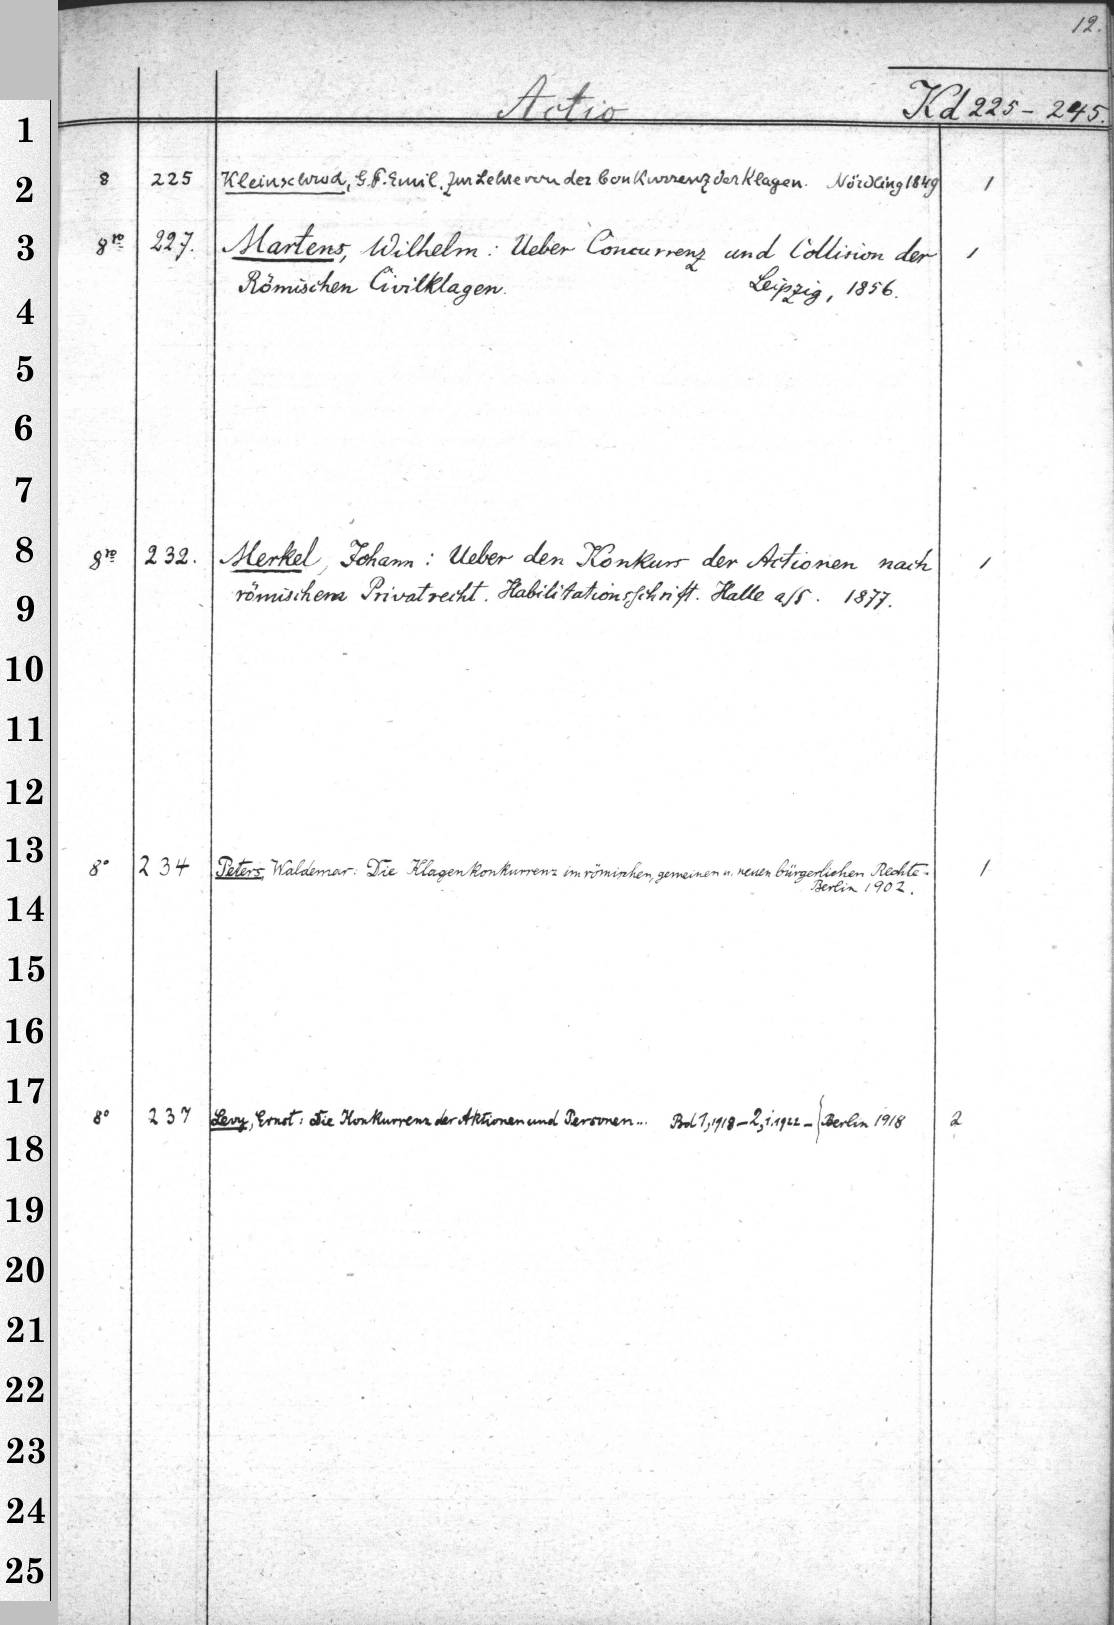 12.
Actio
Kd 225 - 245.
8 225 Kleinschrod, G. F. Emil. Zur Lehre von der Conkurrenz der Klagen. Nördling 1849 1
8ro 227. Martens, Wilhelm: Ueber Concurrenz und Collision der 1
Römischen Civilklagen. Leipzig, 1856.
8ro 232. Merkel, Johann: Ueber den Konkurs der Actionen nach 1
römischem Privatrecht. Habilitationsschrift. Halle a/S. 1877.
8° 234 Peters, Waldemar: Die Klagenkonkurrenz im römischen, gemeinen u. neuen bürgerlichen Rechte. 1
Berlin 1902.
8° 237 Levy, Ernst: Die Konkurrenz der Aktionen und Personen... Bd 1, 1918 - 2, 1. 1922 - Berlin 1918 2
1
2
3
4
5
6
7
8
9
10
11
12
13
14
15
16
17
18
19
20
21
22
23
24
25